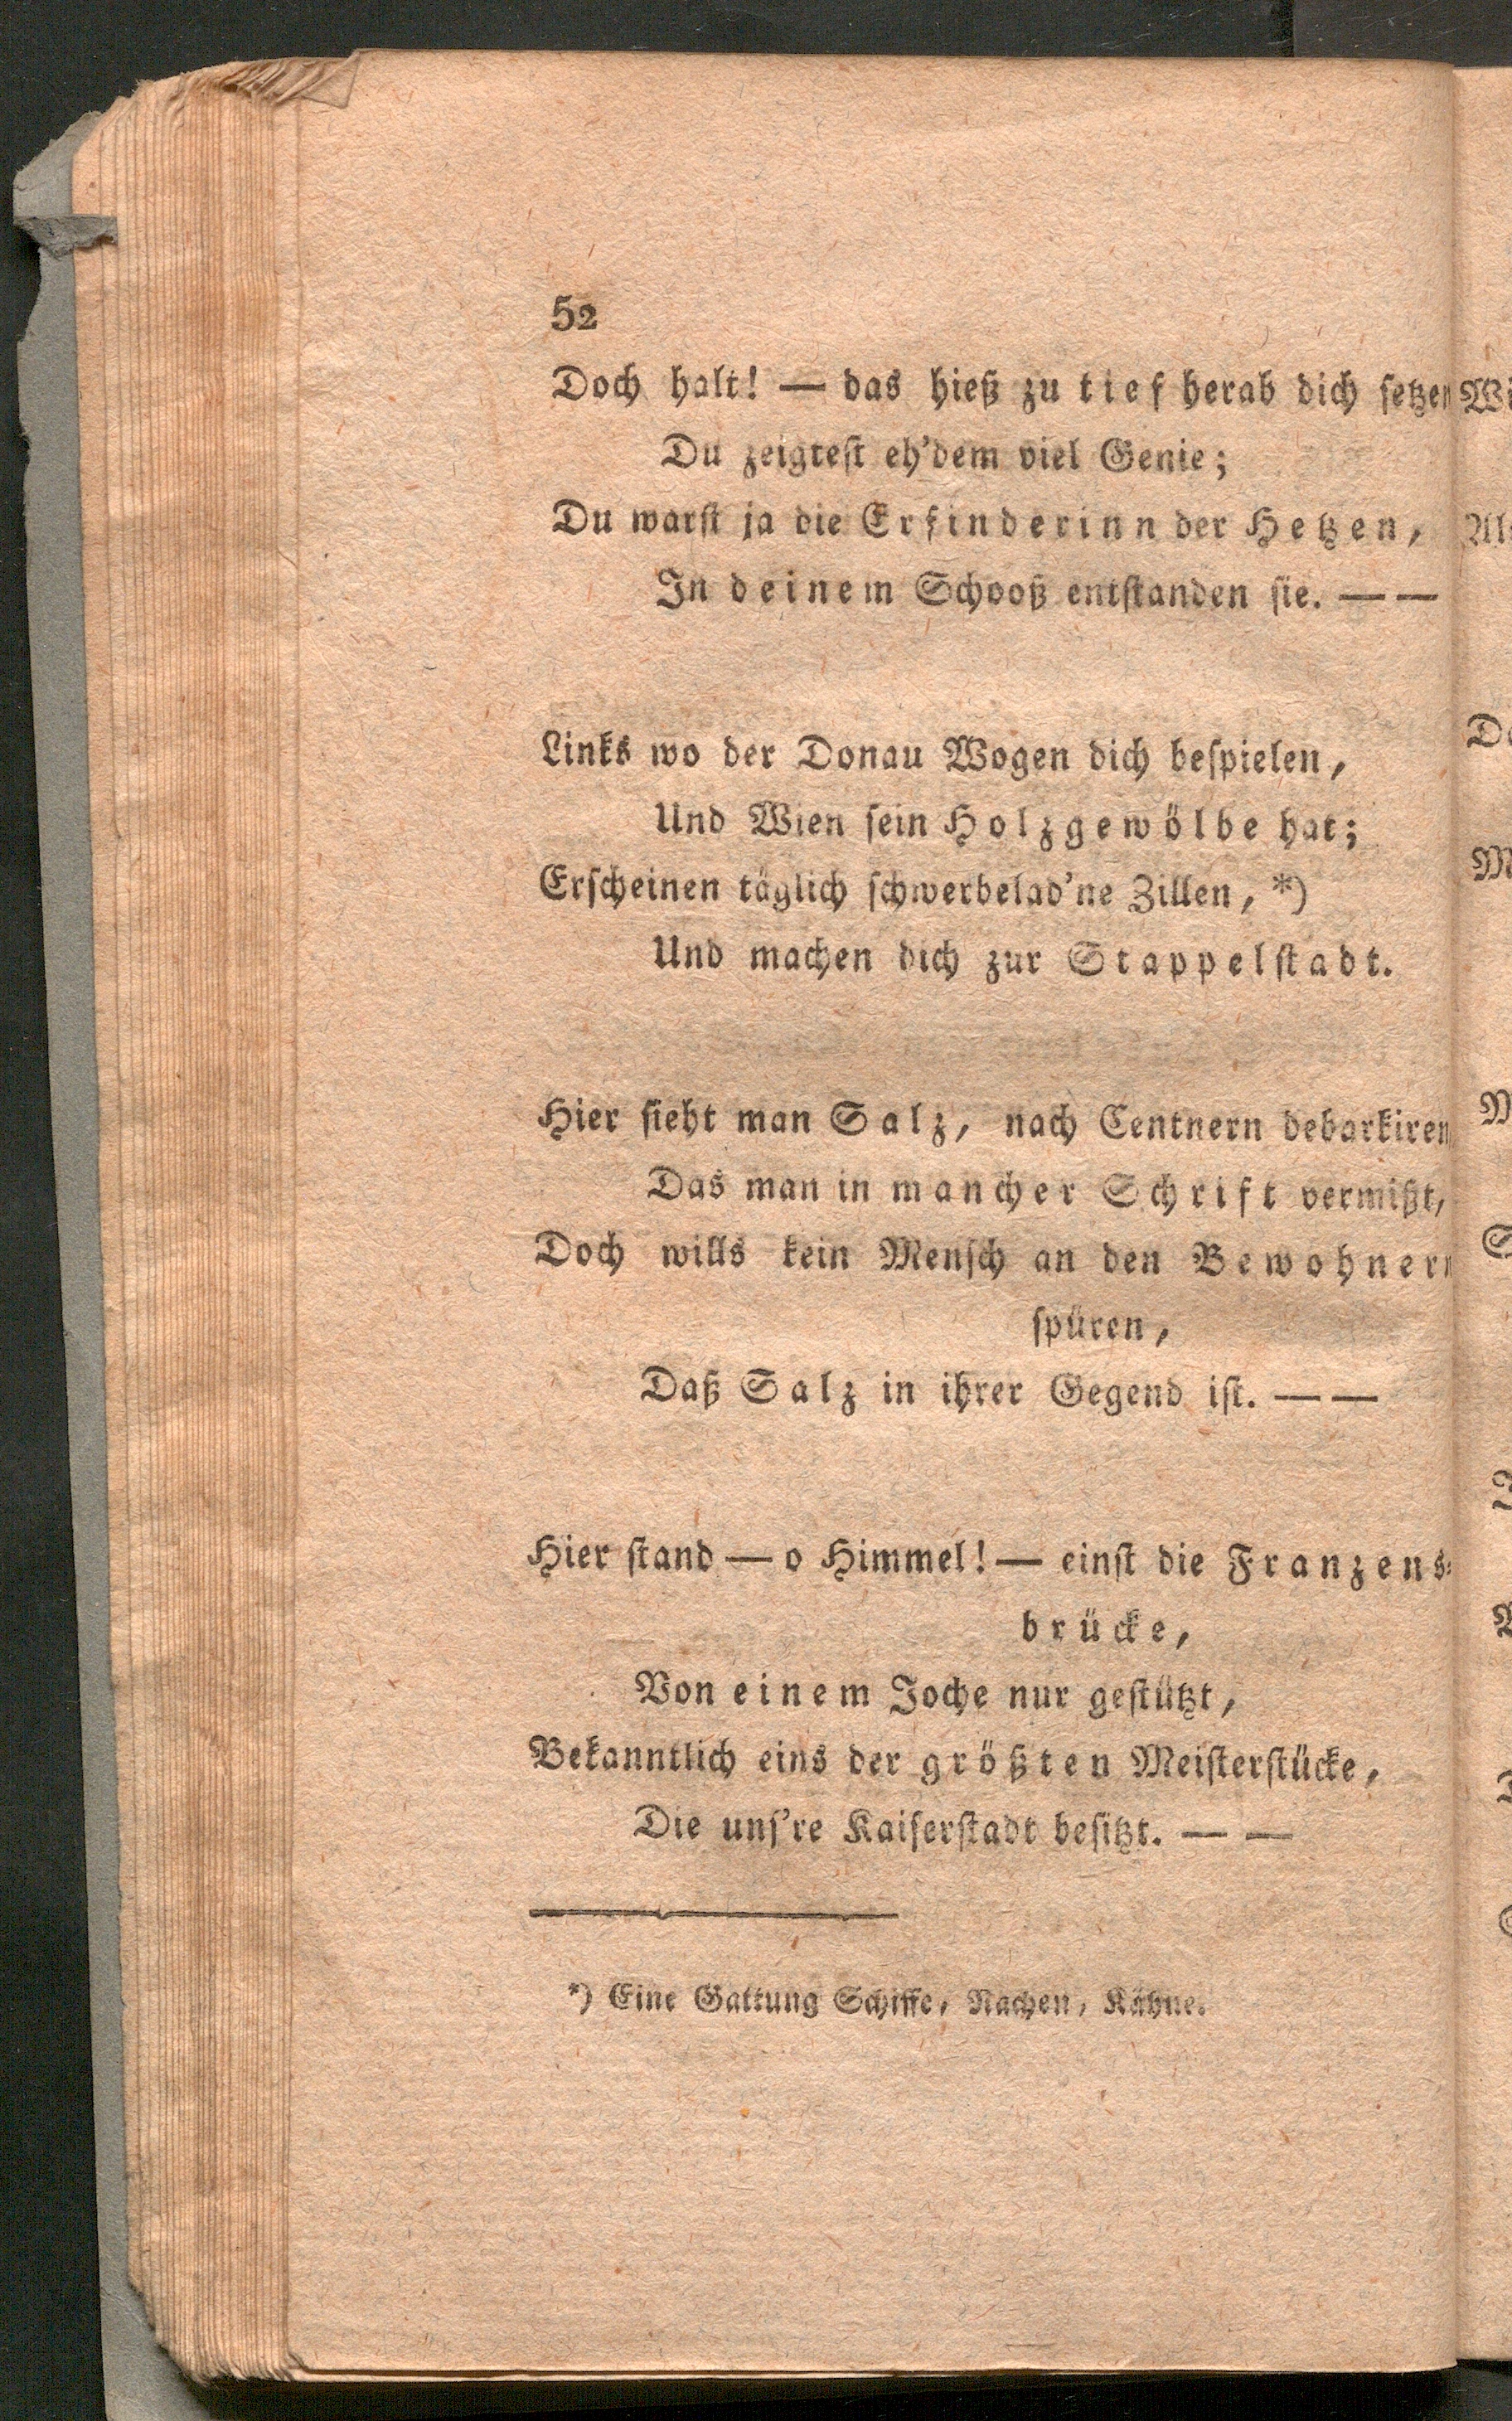 52
Doch halt! — das hieß zu tief herab dich setzen
Du zeigtest eh'dem viel Genie;
Du warst ja die Erfinderinn der Hetzen,
In deinem Schooß entstanden sie. — —
Links wo der Donau Wogen dich bespielen,
Und Wien sein Holzgewölbe hat;
Erscheinen täglich schwerbelad'ne Zillen, *)
Und machen dich zur Stappelstadt.
Hier sieht man Salz, nach Centnern debarkiren
Das man in mancher Schrift vermißt,
Doch wills kein Mensch an den Bewohnern
spüren,
Daß Salz in ihrer Gegend ist. — —
Hier stand — o Himmel! — einst die Franzens-
brücke,
Von einem Joche nur gestützt,
Bekanntlich eins der größten Meisterstücke,
Die uns're Kaiserstadt besitzt. — —
*) Eine Gattung Schiffe, Nachen, Kähne.